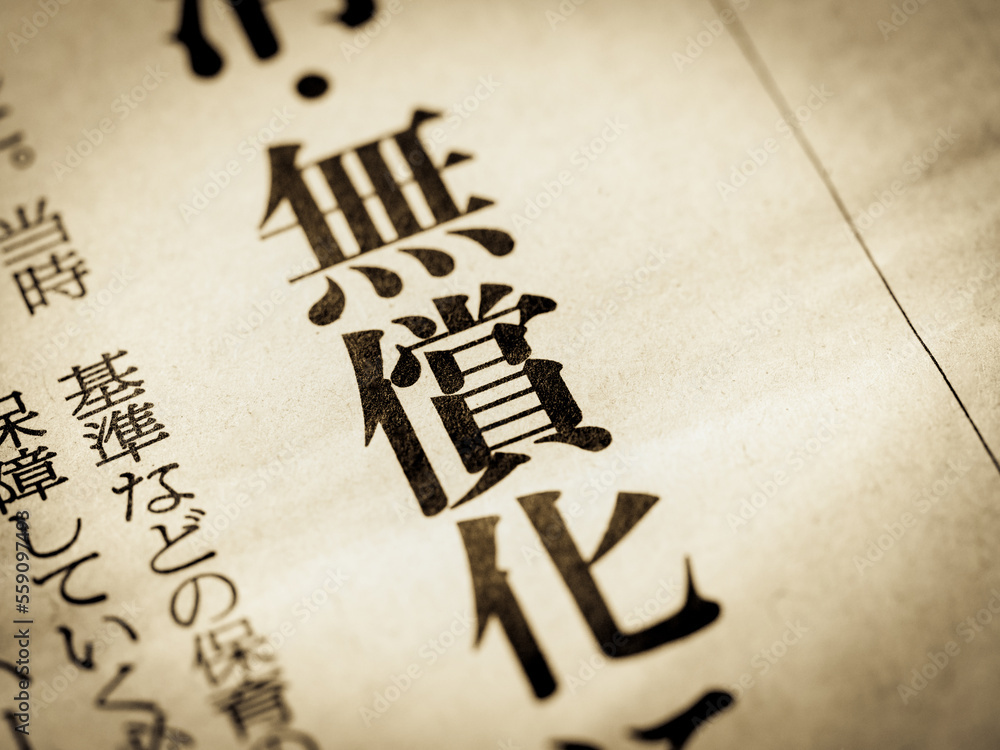 ・無償化
基準などの保育の
保障していく
。当時
Adobe Stock | #559097498